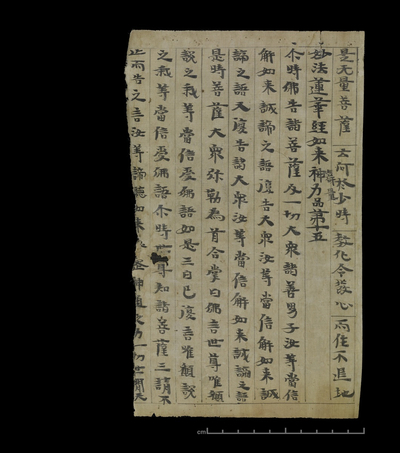 是无量菩薩 云何於少時 教化令發心 而住不退地
妙法蓮華經如來神力品第十五
壽量
尒時佛告諸菩薩及一切大衆諸善男子汝等當信
解如來誠諦之語復告大衆汝等當信解如來誠
諦之語又復告諸大衆汝等當信解如來誠諦之語
是時菩薩大衆弥勒為首合掌白佛言世尊唯願
說之我等當信受佛語如是三白已復言唯願說
之我等當信受佛語尒時世尊知諸菩薩三請不
止而告之言汝等諦聽如來 神通之力一切世間天
cm